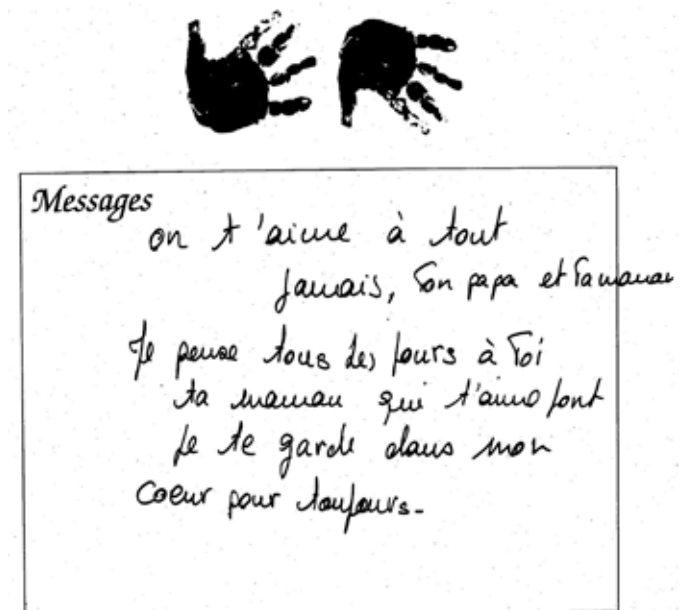 Messages
on t'aime à tout
jamais, ton papa et ta maman
Je pense tous les jours à toi
ta maman qui t'aime fort
je te garde dans mon
coeur pour toujours.